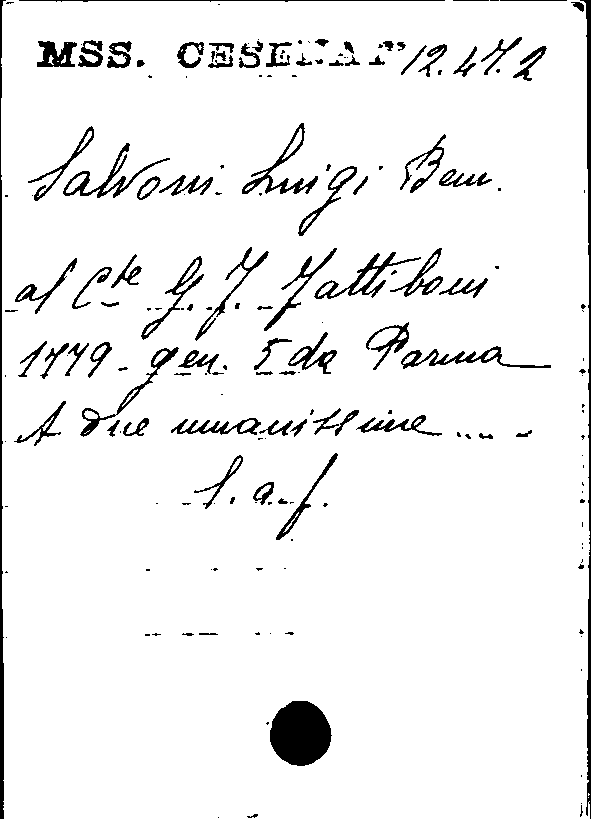 MSS. CESENATI 12.47.2
Salvoni Luigi Bern.
al Cte G. F. Fattiboni
1779 - gen. 5 da Parma
A due umanissime ....
l. a. f.